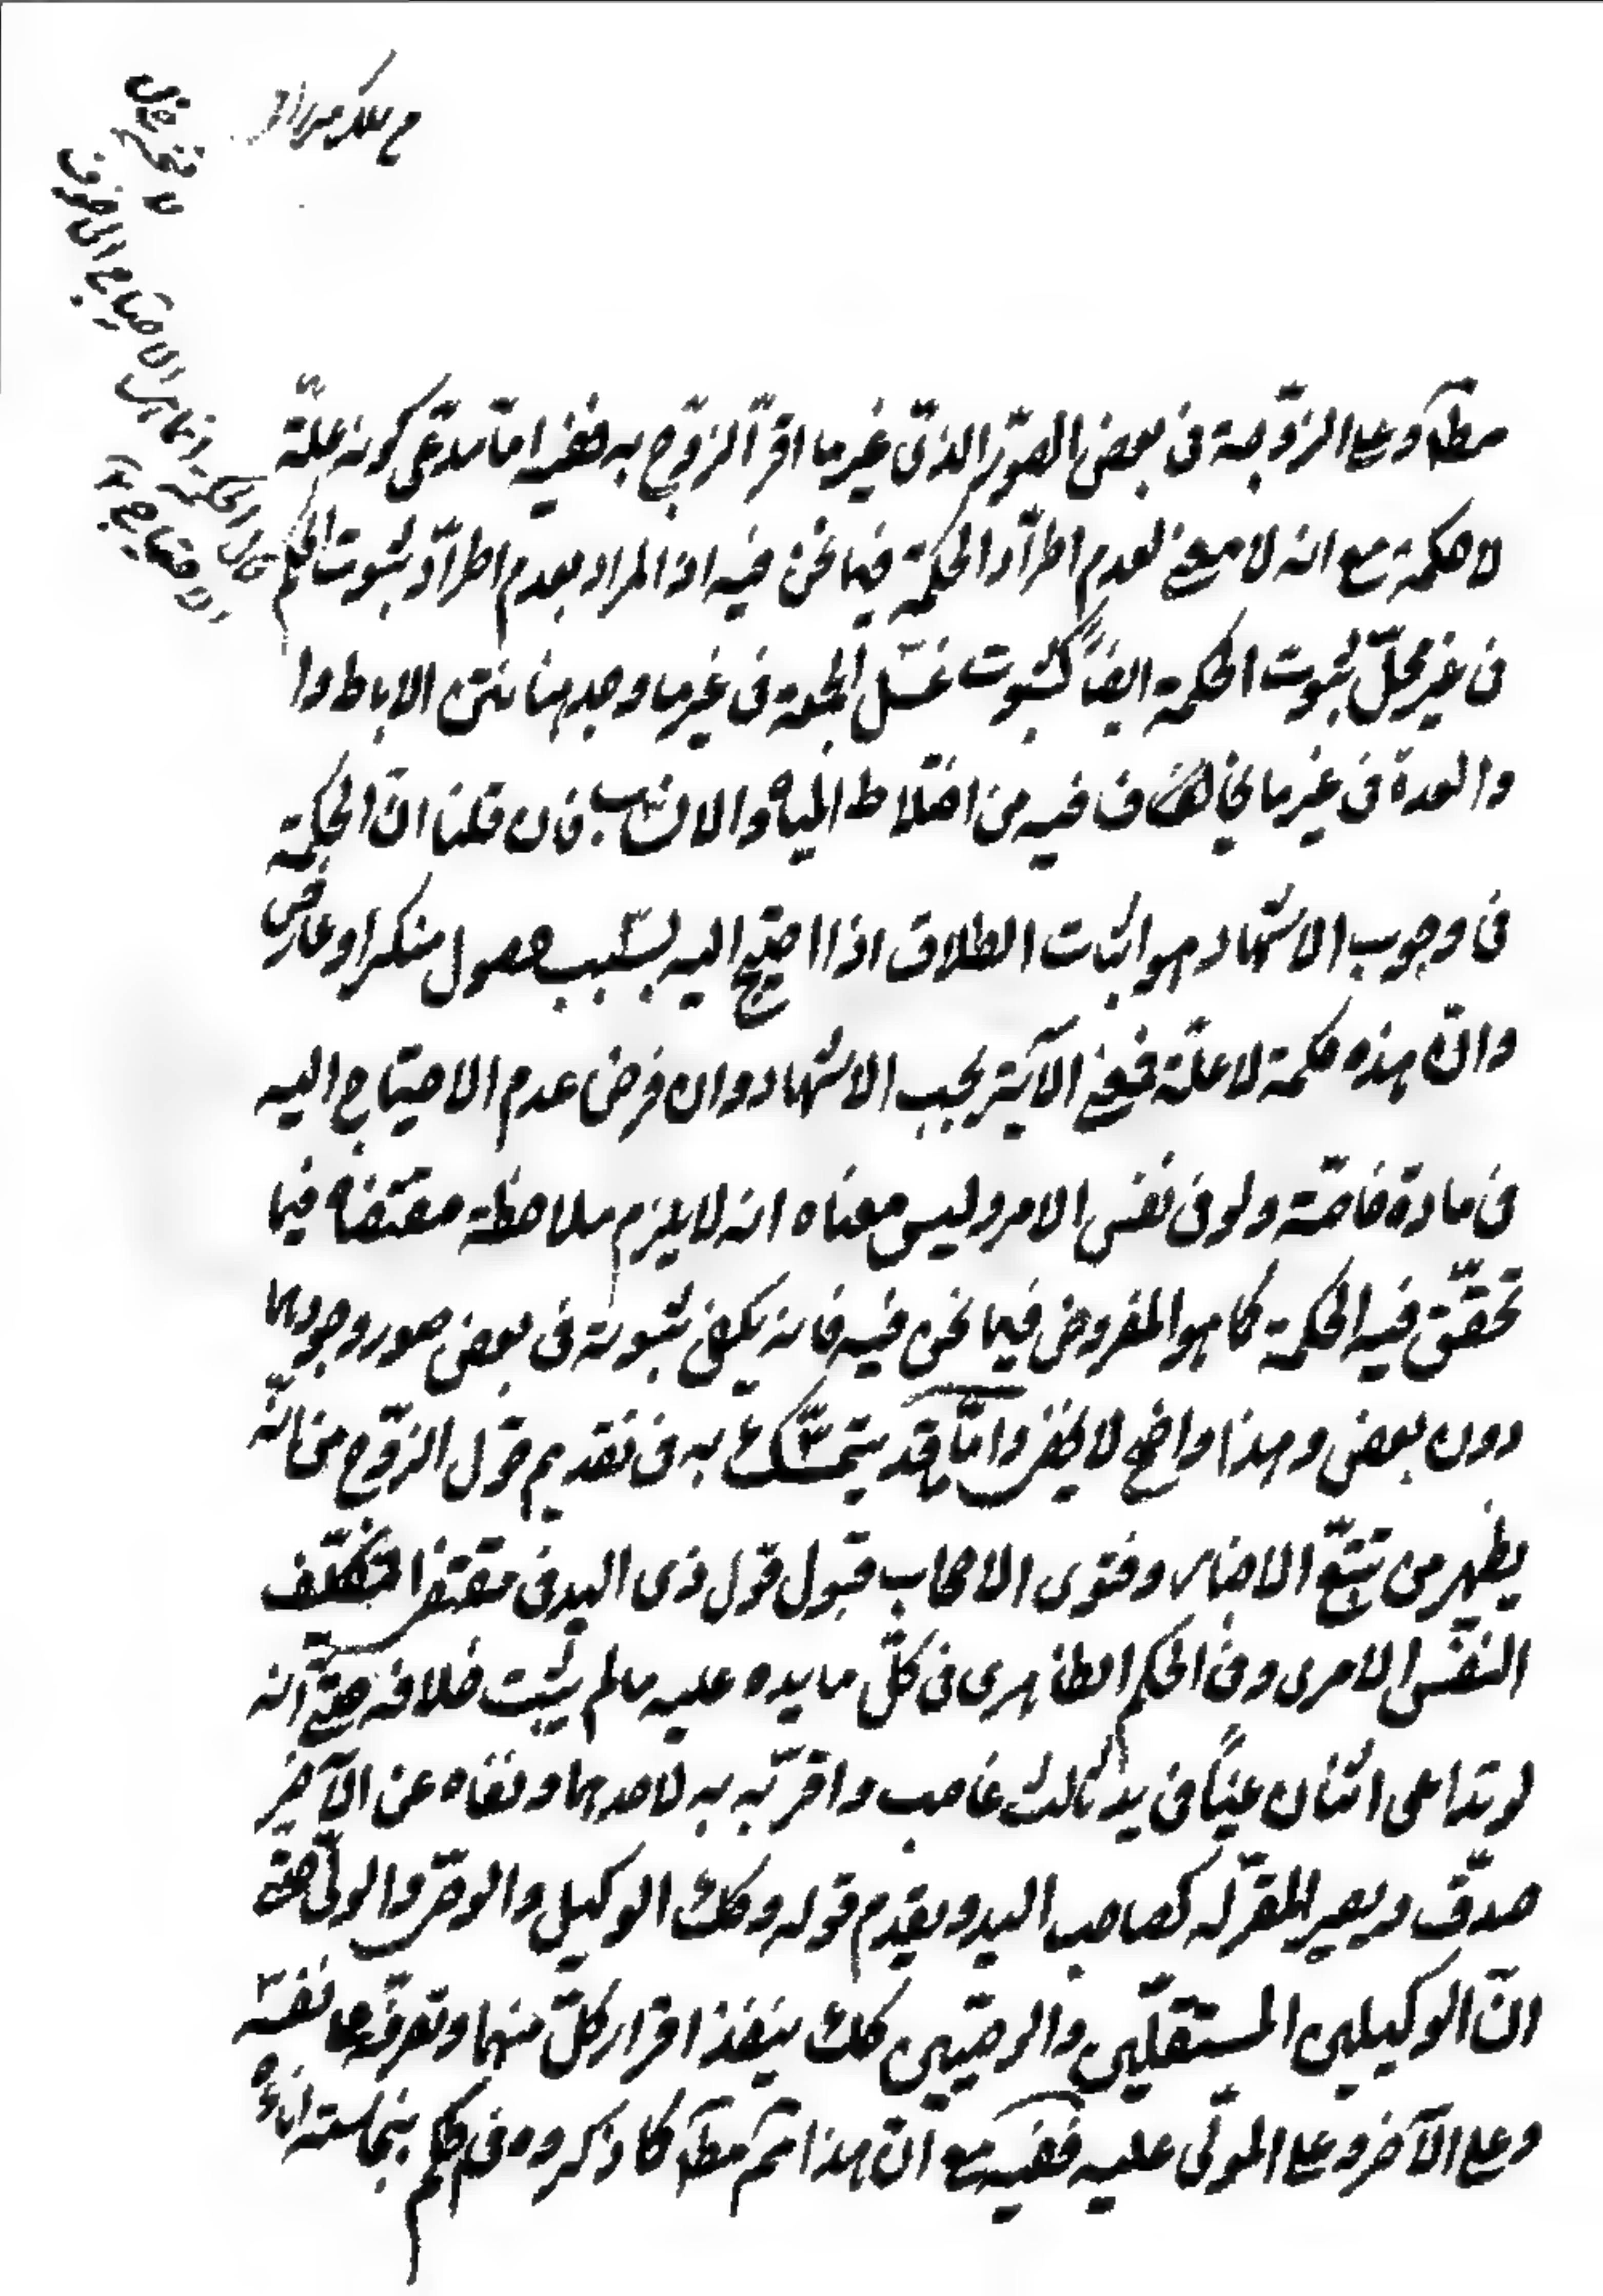 مطآ وعلى الزوجة فى بعض الصّور الذى غير ما اقرّ الزوج به ففيه امّا تدعّى كونه علّة
لا حكمة مع انه لا معنى لعدم اطرّاد الحكمة فيما نحن فيه اذ المراد بعدم اطرّاد ثبوت الحكم
فى غير محلّ ثبوت الحكمة ايضاً كثبوت غسل الجمعة فى غير ما وجد هنا نتن الاباط وا
والعدة فى غير ما يخاف فيه من اختلاط المياه والانساب فان قلنا انّ الحكمة
فى وجوب الاشهاد هو اثبات الطلاق اذا احتيج اليه بسبب حصول منكر او عارض
وانّ هذه حكمة لا علّة فمعنى الآية يجب الاشهاد وان فرض عدم الاحتياج اليه
فى مادة خاصّة ولو فى نفس الامر وليس معناه انه لا يلزم ملاحظة مقتضاه فيما
تحقّق فيه الحكمة كما هو المفروض فيما نحن فيه فانه يكفى ثبوته فى بعض صور وجودها
دون بعض وهذا واضح لا يخفى وامّا ما قد يتمسّك به فى تقديم قول الزوج من انّه
يظهر من تتبّع الاخبار وفتوى الاصحاب قبول قول ذى اليد فى مقتضا تكليف
النفس الامرى وفى الحكم الظاهرى فى كلّ ما يده عليه ما لم يثبت خلافه حتّى انّه
لو تداعى اثنان عيناً فى يد ثالث غاصب واقرّ به لاحدهما ونفاه عن الآخر
صدّق ويصير المقرّ له كصاحب اليد ويقدم قوله وكك الوكيل والوصّى والولىّ حتى
انّ الوكيلين المستقلّين والوصيّين كك ينفذ اقرار كلّ منهما وتصرّفه على نفسه
وعلى الآخر وعلى المولّى عليه ففيه مع انّ هذا ثمّ مطآ كما ذكروه فى حكم بنجاسة اناء